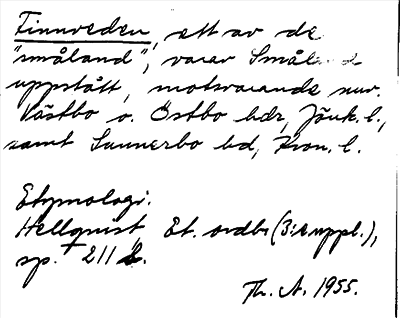 Finnveden, ett av de
"småland", varav Småland
uppstått, motsvarande nuv.
Västbo o. Östbo hdr, Jönk. l.,
samt Sunnerbo hd, Kron. l.
Etymologi.
Hellquist Et. ordb. (3:e uppl.),
sp. 211 f.
Th. A. 1955.